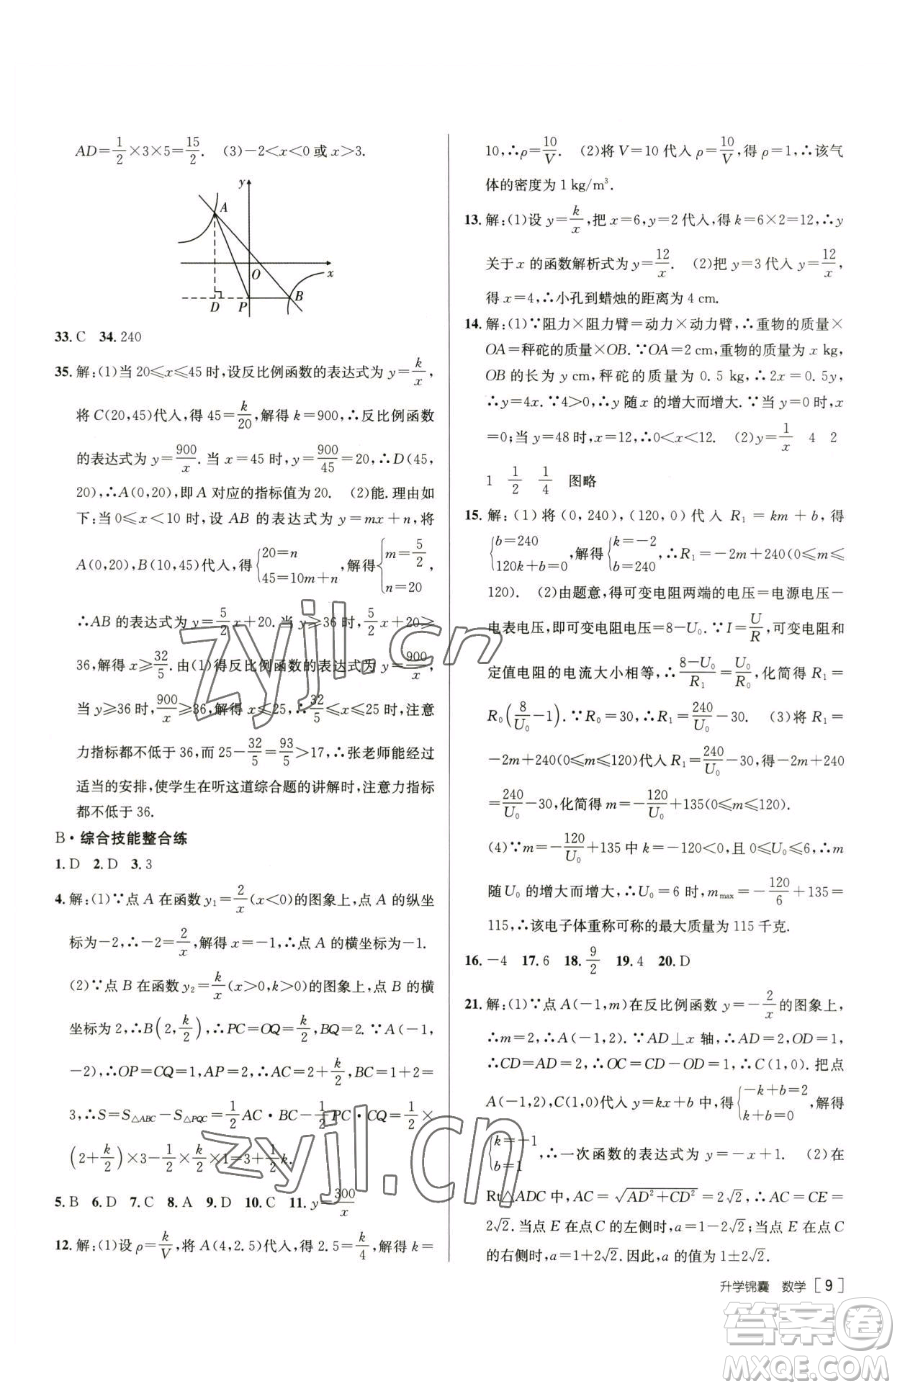 AD=\frac{1}{2}×3×5=\frac{15}{2}. (3)-2<x<0或x>3.
y
A
O
x
D
P
B
33. C 34. 240
35. 解:(1)当20≤x≤45时,设反比例函数的表达式为y=\frac{k}{x},
将C(20,45)代入,得45=\frac{k}{20},解得k=900,∴反比例函数
的表达式为y=\frac{900}{x}.当x=45时,y=\frac{900}{45}=20,∴D(45,
20),∴A(0,20),即A对应的指标值为20. (2)能.理由如
下:当0≤x<10时,设AB的表达式为y=mx+n,将
A(0,20),B(10,45)代入,得{20=n 45=10m+n,解得{m=\frac{5}{2} n=20,
∴AB的表达式为y=\frac{5}{2}x+20.当y≥36时,\frac{5}{2}x+20≥
36,解得x≥\frac{32}{5}.由(1)得反比例函数的表达式为y=\frac{900}{x},
当y≥36时,\frac{900}{x}≥36,解得x≤25,∴\frac{32}{5}≤x≤25时,注意
力指标都不低于36.而25-\frac{32}{5}=\frac{93}{5}>17,∴张老师能经过
适当的安排,使学生在听这道综合题的讲解时,注意力指标
都不低于36.
B·综合技能整合练
1. D 2. D 3. 3
4. 解:(1)∵点A在函数y₁=\frac{2}{x}(x<0)的图象上,点A的纵坐
标为-2,∴-2=\frac{2}{x},解得x=-1,∴点A的横坐标为-1.
(2)∵点B在函数y₂=\frac{k}{x}(x>0,k>0)的图象上,点B的横
坐标为2,∴B(2,\frac{k}{2}),∴PC=OQ=\frac{k}{2},BQ=2.∵A(-1,
-2),∴OP=CQ=1,AP=2,∴AC=2+\frac{k}{2},BC=1+2=
3,∴S=S△ABC-S△PQC=\frac{1}{2}AC·BC-\frac{1}{2}PC·CQ=\frac{1}{2}×
(2+\frac{k}{2})×3-\frac{1}{2}×\frac{k}{2}×1=3+\frac{1}{2}k.
5. B 6. D 7. C 8. A 9. D 10. C 11. y=\frac{300}{x}
12. 解:(1)设ρ=\frac{k}{V},将A(4,2.5)代入,得2.5=\frac{k}{4},解得k=
10,∴ρ=\frac{10}{V}. (2)将V=10代入ρ=\frac{10}{V},得ρ=1,∴该气
体的密度为1 kg/m³.
13. 解:(1)设y=\frac{k}{x},把x=6,y=2代入,得k=6×2=12,∴y
关于x的函数解析式为y=\frac{12}{x}. (2)把y=3代入y=\frac{12}{x},得
x=4,∴小孔到蜡烛的距离为4 cm.
14. 解:(1)∵阻力×阻力臂=动力×动力臂,∴重物的质量×
OA=秤砣的质量×OB.∵OA=2 cm,重物的质量为x kg,
OB的长为y cm,秤砣的质量为0.5 kg,∴2x=0.5y,
∴y=4x.∵4>0,∴y随x的增大而增大.∵当y=0时,x
=0;当y=48时,x=12,∴0<x<12. (2)y=\frac{1}{x} 4 2
1 \frac{1}{2} \frac{1}{4} 图略
15. 解:(1)将(0,240),(120,0)代入R₁=km+b,得
{b=240 120k+b=0,解得{k=-2 b=240,∴R₁=-2m+240(0≤m≤
120). (2)由题意,得可变电阻两端的电压=电源电压-
电表电压,即可变电阻电压=8-U₀.∵I=\frac{U}{R},可变电阻和
定值电阻的电流大小相等,∴\frac{8-U₀}{R₁}=\frac{U₀}{R₀},化简得R₁=
R₀(\frac{8}{U₀}-1).∵R₀=30,∴R₁=\frac{240}{U₀}-30. (3)将R₁=
-2m+240(0≤m≤120)代入R₁=\frac{240}{U₀}-30,得-2m+240=
\frac{240}{U₀}-30,化简得m=-\frac{120}{U₀}+135(0≤m≤120).
(4)∵m=-\frac{120}{U₀}+135中k=-120<0,且0≤U₀≤6,∴m
随U₀的增大而增大,∴U₀=6时,m_max=-\frac{120}{6}+135=
115,∴该电子体重称可称的最大质量为115千克.
16. -4 17. 6 18. \frac{9}{2} 19. 4 20. D
21. 解:(1)∵点A(-1,m)在反比例函数y=-\frac{2}{x}的图象上,
∴m=2,∴A(-1,2).∵AD⊥x轴,∴AD=2,OD=1,
∴CD=AD=2,∴OC=CD-OD=1,∴C(1,0).把点
A(-1,2),C(1,0)代入y=kx+b中,得{-k+b=2 k+b=0,解得
{k=-1 b=1,∴一次函数的表达式为y=-x+1. (2)在
Rt△ADC中,AC=\sqrt{AD²+CD²}=2\sqrt{2},∴AC=CE=
2\sqrt{2}.当点E在点C的左侧时,a=1-2\sqrt{2};当点E在点C
的右侧时,a=1+2\sqrt{2}.因此,a的值为1±2\sqrt{2}.
升学锦囊 数学 [9]
zyjl.cn
zyjl.cn
答案圈
MXQE.COM